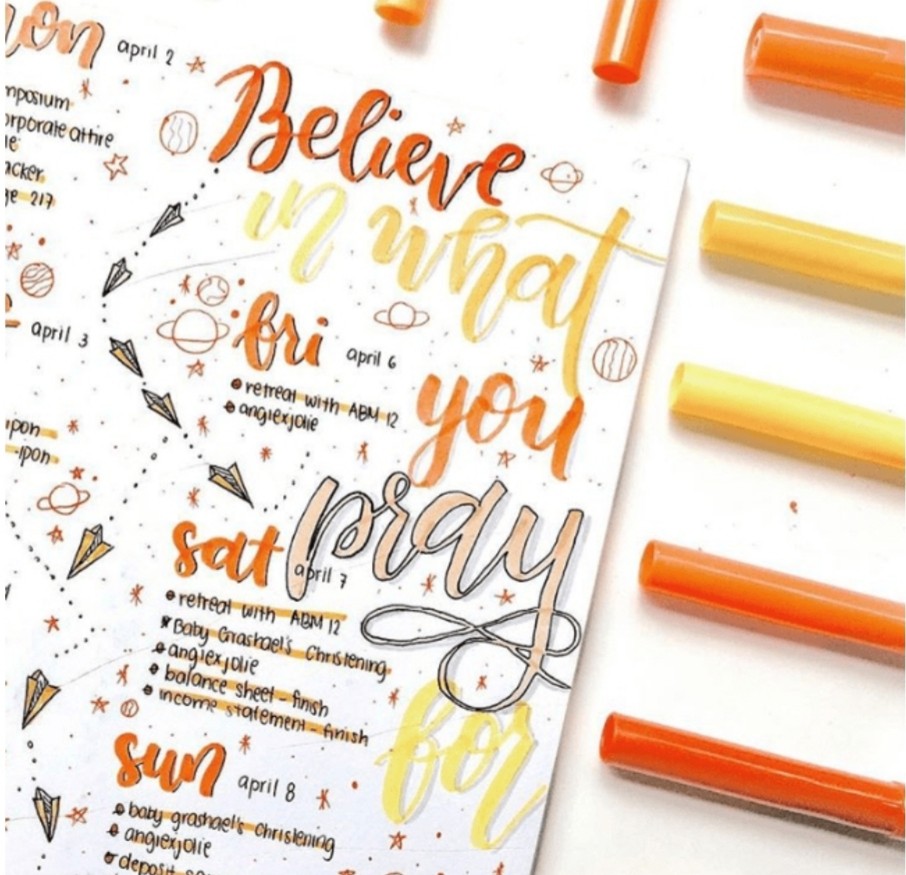 april 2
Believe
in what
you
pray
for
april 3
fri
april 6
retreat with ABM 12
angiexjolie
sat
april 7
retreat with ABM 12
Baby Grashael's Christening
angiexjolie
balance sheet - finish
income statement - finish
sun
april 8
baby grashael's christening
angiexjolie
deposit